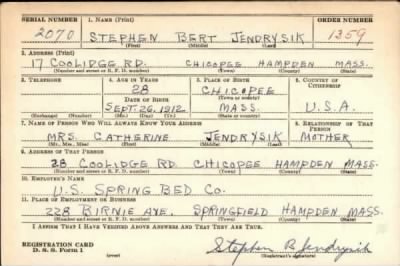 SERIAL NUMBER 1. NAME (Print) ORDER NUMBER
2070 STEPHEN BERT JENDRYSIK 1359
(First) (Middle) (Last)
2. ADDRESS (Print)
17 COOLIDGE RD. CHICOPEE HAMPDEN MASS.
(Number and street or R. F. D. number) (Town) (County) (State)
3. TELEPHONE 4. AGE IN YEARS 5. PLACE OF BIRTH 6. COUNTRY OF CITIZENSHIP
28 CHICOPEE
DATE OF BIRTH (Town or county)
SEPT. 26, 1912 MASS. U.S.A.
(Exchange) (Number) (Mo.) (Day) (Yr.) (State or country)
7. NAME OF PERSON WHO WILL ALWAYS KNOW YOUR ADDRESS 8. RELATIONSHIP OF THAT PERSON
MRS. CATHERINE JENDRYSIK MOTHER
(Mr., Mrs., Miss) (First) (Middle) (Last)
9. ADDRESS OF THAT PERSON
28 COOLIDGE RD. CHICOPEE HAMPDEN MASS.
(Number and street or R. F. D. number) (Town) (County) (State)
10. EMPLOYER'S NAME
U.S. SPRING BED CO.
11. PLACE OF EMPLOYMENT OR BUSINESS
228 BIRNIE AVE. SPRINGFIELD HAMPDEN MASS.
(Number and street or R. F. D. number) (Town) (County) (State)
I AFFIRM THAT I HAVE VERIFIED ABOVE ANSWERS AND THAT THEY ARE TRUE.
REGISTRATION CARD
D. S. S. Form 1 Stephen B Jendrysik
(Registrant's signature)